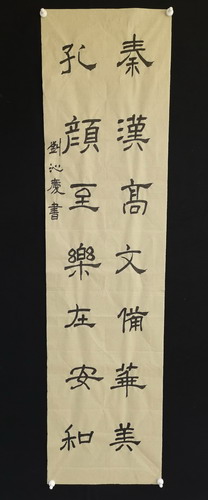 秦漢高文備華美
孔顏至樂在安和
劉沁慶書